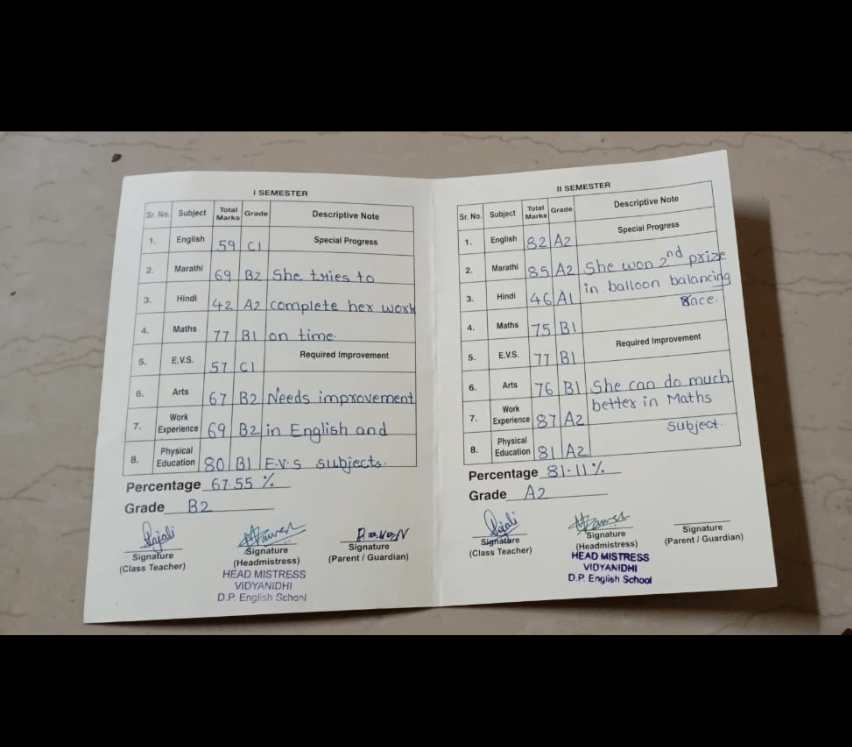 I SEMESTER
Sr. No. Subject Total Marks Grade Descriptive Note
1. English 59 C1 Special Progress
2. Marathi 69 B2 She tries to
3. Hindi 42 A2 complete her work
4. Maths 77 B1 on time
5. E.V.S. 57 C1 Required Improvement
6. Arts 67 B2 Needs improvement
7. Work Experience 69 B2 in English and
8. Physical Education 80 B1 E.V.S subjects.
Percentage 67.55 %
Grade B2
Signature (Class Teacher)
Signature (Headmistress)
HEAD MISTRESS
VIDYANIDHI
D.P. English School
Signature (Parent / Guardian)
II SEMESTER
Sr. No. Subject Total Marks Grade Descriptive Note
1. English 82 A2 Special Progress
2. Marathi 85 A2 She won 2nd prize
3. Hindi 46 A1 in balloon balancing
Race.
4. Maths 75 B1
5. E.V.S. 77 B1 Required Improvement
6. Arts 76 B1 She can do much
7. Work Experience 87 A2 better in Maths
Subject.
8. Physical Education 81 A2
Percentage 81.11 %
Grade A2
Signature (Class Teacher)
Signature (Headmistress)
HEAD MISTRESS
VIDYANIDHI
D.P. English School
Signature (Parent / Guardian)